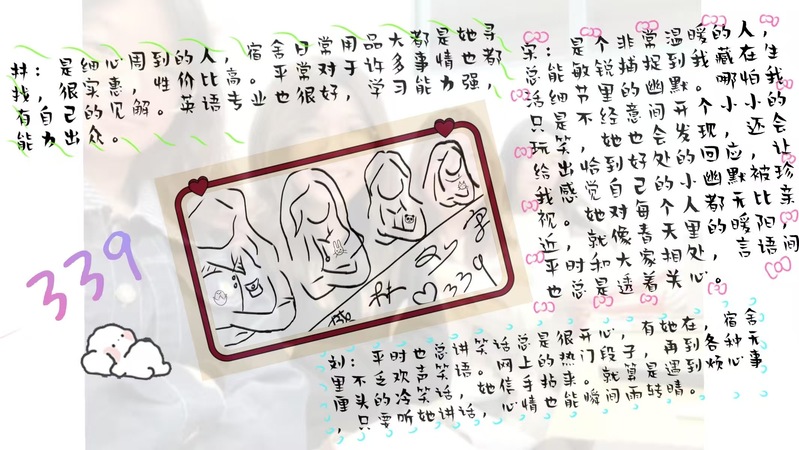 林：是细心周到的人，宿舍日常用品大都是她寻
找，很实惠，性价比高。平常对于许多事情也都
有自己的见解。英语专业也很好，学习能力强，
能力出众。
宋：是个非常温暖的人，
总能敏锐捕捉我藏在生
话细节里的幽默。哪怕我
只是不经意间开个小小的
玩笑，她也会发现，还会
给出恰到好处的回应，让
我感觉自己的小幽默被珍
视。她对每个人都无比亲
近，就像春天里的暖阳，
平时和大家相处，言语间
也总是透着关心。
339
林
339
刘：平时也总讲笑话总是很开心，有她在，宿舍
里不乏欢声笑语。网上的热门段子，再到各种无
厘头的冷笑话，她信手拈来。就算是遇到烦心事
，只要听她讲话，心情也能瞬间雨转晴。